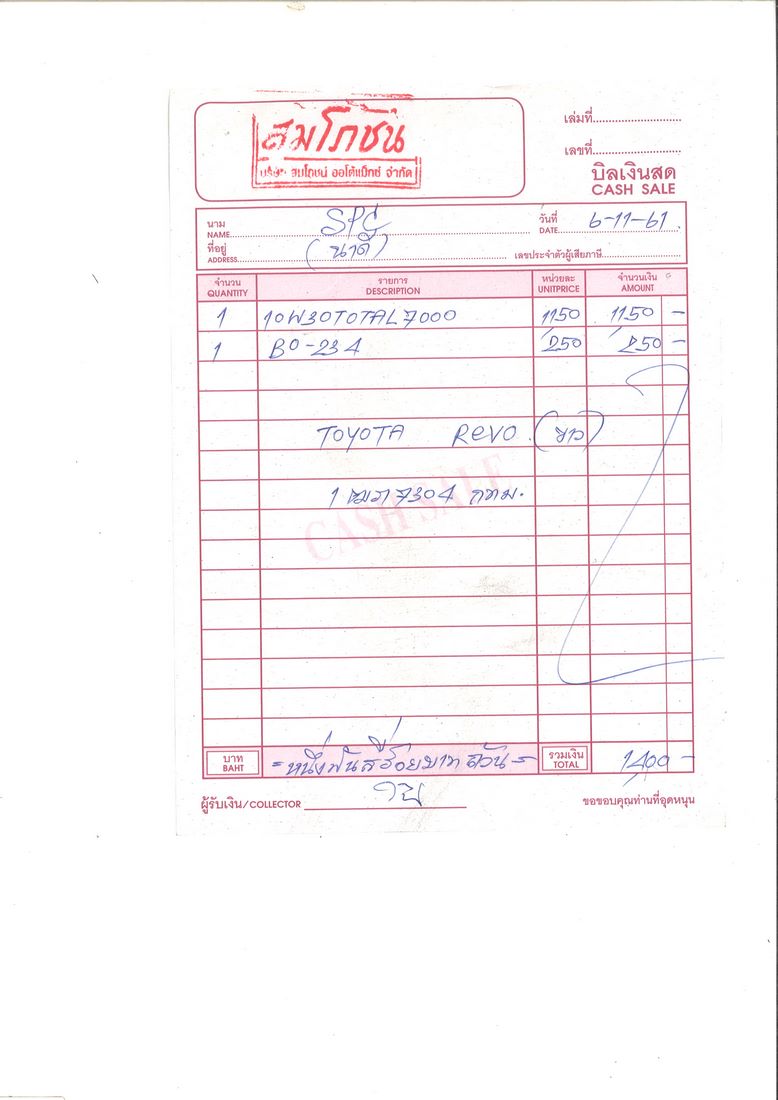 สมโภชน์
บริษัท สมโภชน์ ออโต้แม็กซ์ จำกัด
เล่มที่
เลขที่
บิลเงินสด
CASH SALE
นาม NAME SPC วันที่ DATE 6-11-61
ที่อยู่ ADDRESS (นาดี) เลขประจำตัวผู้เสียภาษี
จำนวน รายการ หน่วยละ จำนวนเงิน
QUANTITY DESCRIPTION UNITPRICE AMOUNT
1 10W30TOTAL7000 1150 1150 -
1 BO-234 250 250 -
TOYOTA REVO (ขาว)
CASH SALE
7304 กทม.
บาท BAHT =หนึ่งพันสี่ร้อยบาทถ้วน= รวมเงิน TOTAL 1400 -
ผู้รับเงิน/COLLECTOR
ขอขอบคุณท่านที่อุดหนุน